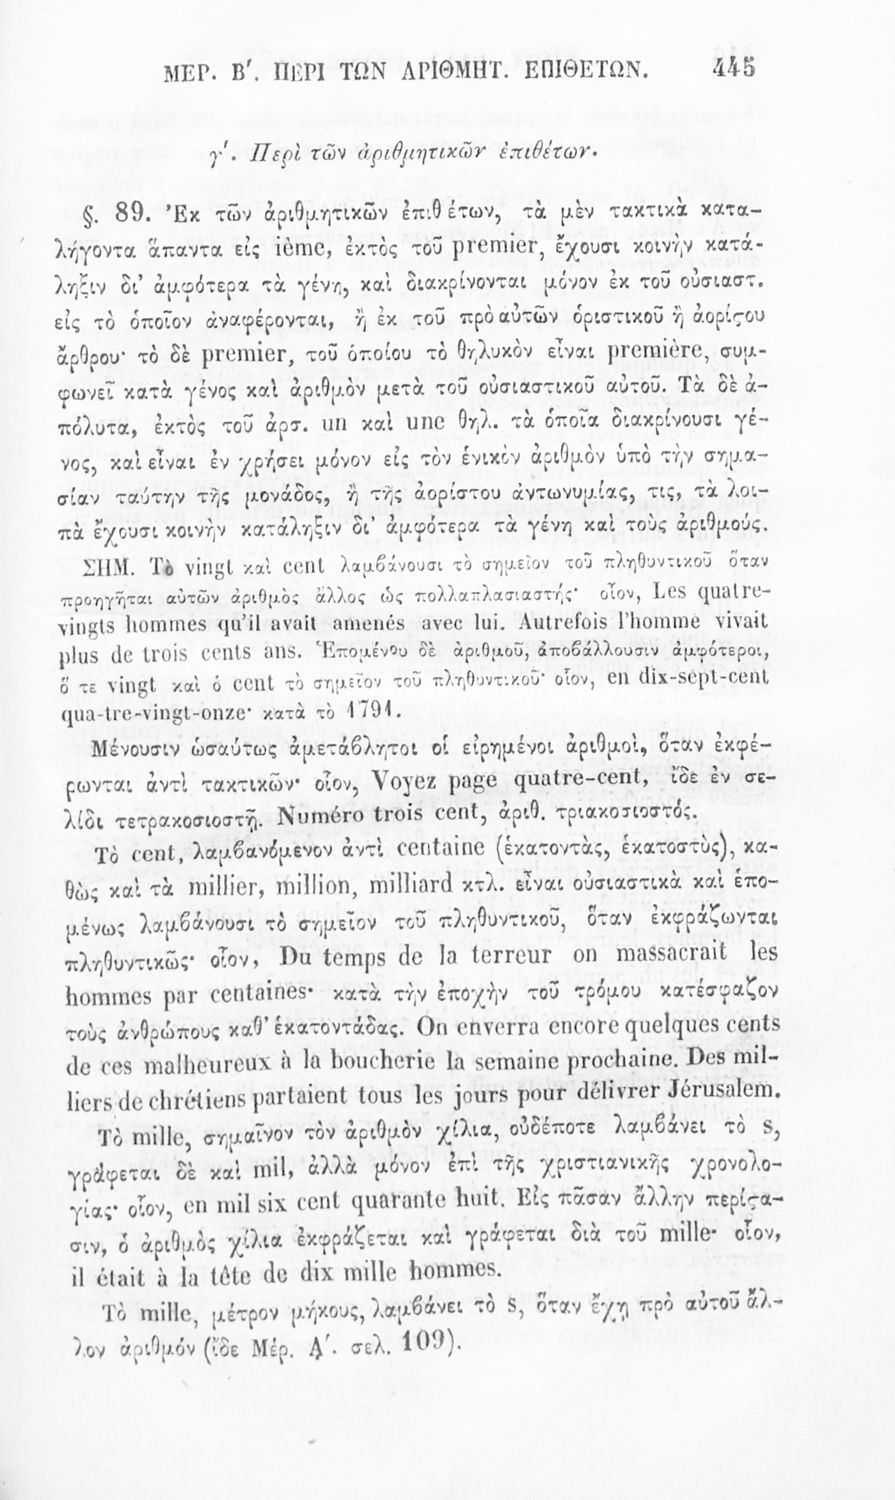 ΜΕΡ. Β′. ΠΕΡΙ ΤΩΝ ΑΡΙΘΜΗΤ. ΕΠΙΘΕΤΩΝ. 445
γ′. Περὶ τῶν ἀριθμητικῶν ἐπιθέτων.
§. 89. Ἐκ τῶν ἀριθμητικῶν ἐπιθέτων, τὰ μὲν τακτικὰ κατα-
λήγοντα ἅπαντα εἰς ième, ἐκτὸς τοῦ premier, ἔχουσι κοινὴν κατά-
ληξιν δι’ ἀμφότερα τὰ γένη, καὶ διακρίνονται μόνον ἐκ τοῦ οὐσιαστ.
εἰς τὸ ὁποῖον ἀναφέρονται, ἢ ἐκ τοῦ πρὸ αὐτῶν ὁριστικοῦ ἢ ἀορίϛου
ἄρθρου· τὸ δὲ premier, τοῦ ὁποίου τὸ θηλυκὸν εἶναι première, συμ-
φωνεῖ κατὰ γένος καὶ ἀριθμὸν μετὰ τοῦ οὐσιαστικοῦ αὐτοῦ. Τὰ δὲ ἀ-
πόλυτα, ἐκτὸς τοῦ ἀρσ. un καὶ une θηλ. τὰ ὁποῖα διακρίνουσι γέ-
νος, καὶ εἶναι ἐν χρήσει μόνον εἰς τὸν ἑνικὸν ἀριθμὸν ὑπὸ τὴν σημα-
σίαν ταύτην τῆς μονάδος, ἢ τῆς ἀορίστου ἀντωνυμίας, τις, τὰ λοι-
πὰ ἔχουσι κοινὴν κατάληξιν δι’ ἀμφότερα τὰ γένη καὶ τοὺς ἀριθμούς.
ΣΗΜ. Τὸ vingt καὶ cent λαμβάνουσι τὸ σημεῖον τοῦ πληθυντικοῦ ὅταν
προηγῆται αὐτῶν ἀριθμὸς ἄλλος ὡς πολλαπλασιαστής· οἷον, Les quatre-
vingts hommes qu'il avait amenés avec lui. Autrefois l'homme vivait
plus de trois cents ans. Ἑπομένου δὲ ἀριθμοῦ, ἀποβάλλουσιν ἀμφότεροι,
ὅ τε vingt καὶ ὁ cent τὸ σημεῖον τοῦ πληθυντικοῦ· οἷον, en dix-sept-cent
qua-tre-vingt-onze· κατὰ τὸ 1791.
Μένουσιν ὡσαύτως ἀμετάβλητοι οἱ εἰρημένοι ἀριθμοὶ, ὅταν ἐκφέ-
ρωνται ἀντὶ τακτικῶν· οἷον, Voyez page quatre-cent, ἴδε ἐν σε-
λίδι τετρακοσιοστῇ. Numéro trois cent, ἀριθ. τριακοσιοστός.
Τὸ cent, λαμβανόμενον ἀντὶ centaine (ἑκατοντὰς, ἑκατοστὺς), κα-
θὼς καὶ τὰ millier, million, milliard κτλ. εἶναι οὐσιαστικὰ καὶ ἑπο-
μένως λαμβάνουσι τὸ σημεῖον τοῦ πληθυντικοῦ, ὅταν ἐκφράζωνται
πληθυντικῶς· οἷον, Du temps de la terreur on massacrait les
hommes par centaines· κατὰ τὴν ἐποχὴν τοῦ τρόμου κατέσφαζον
τοὺς ἀνθρώπους καθ’ ἑκατοντάδας. On enverra encore quelques cents
de ces malheureux à la boucherie la semaine prochaine. Des mil-
liers de chrétiens partaient tous les jours pour délivrer Jérusalem.
Τὸ mille, σημαῖνον τὸν ἀριθμὸν χίλια, οὐδέποτε λαμβάνει τὸ s,
γράφεται δὲ καὶ mil, ἀλλὰ μόνον ἐπὶ τῆς χριστιανικῆς χρονολο-
γίας· οἷον, en mil six cent quarante huit. Εἰς πᾶσαν ἄλλην περίϛα-
σιν, ὁ ἀριθμὸς χίλια ἐκφράζεται καὶ γράφεται διὰ τοῦ mille· οἷον,
il était à la tête de dix mille hommes.
Τὸ mille, μέτρον μήκους, λαμβάνει τὸ s, ὅταν ἔχῃ πρὸ αὐτοῦ ἄλ-
λον ἀριθμόν (ἴδε Μέρ. Α′. σελ. 109).